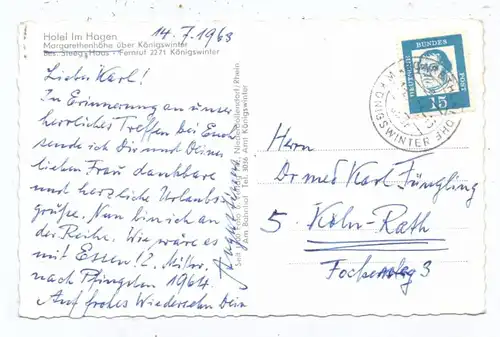 Hotel Im Hagen
Margarethenhöhe über Königswinter
Bes. Steeg-Haas - Fernruf 2271 Königswinter
14.7.1963
Lieber Karl!
In Erinnerung an unser
herrliches Treffen bei Euch
sende ich Dir und Deiner
lieben Frau dankbare
und herzliche Urlaubs-
grüße. Nun bin ich an
der Reihe. Wie wäre es
mit Essen! 2.
nach Pfingsten 1964.
Auf frohes Wiedersehn Dein
August
Am Bahnhof Tel. 3016 Amt Königswinter
DEUTSCHE BUNDESPOST
15
KÖNIGSWINTER
Herrn
Dr med Karl Jüngling
5 Köln-Rath
3